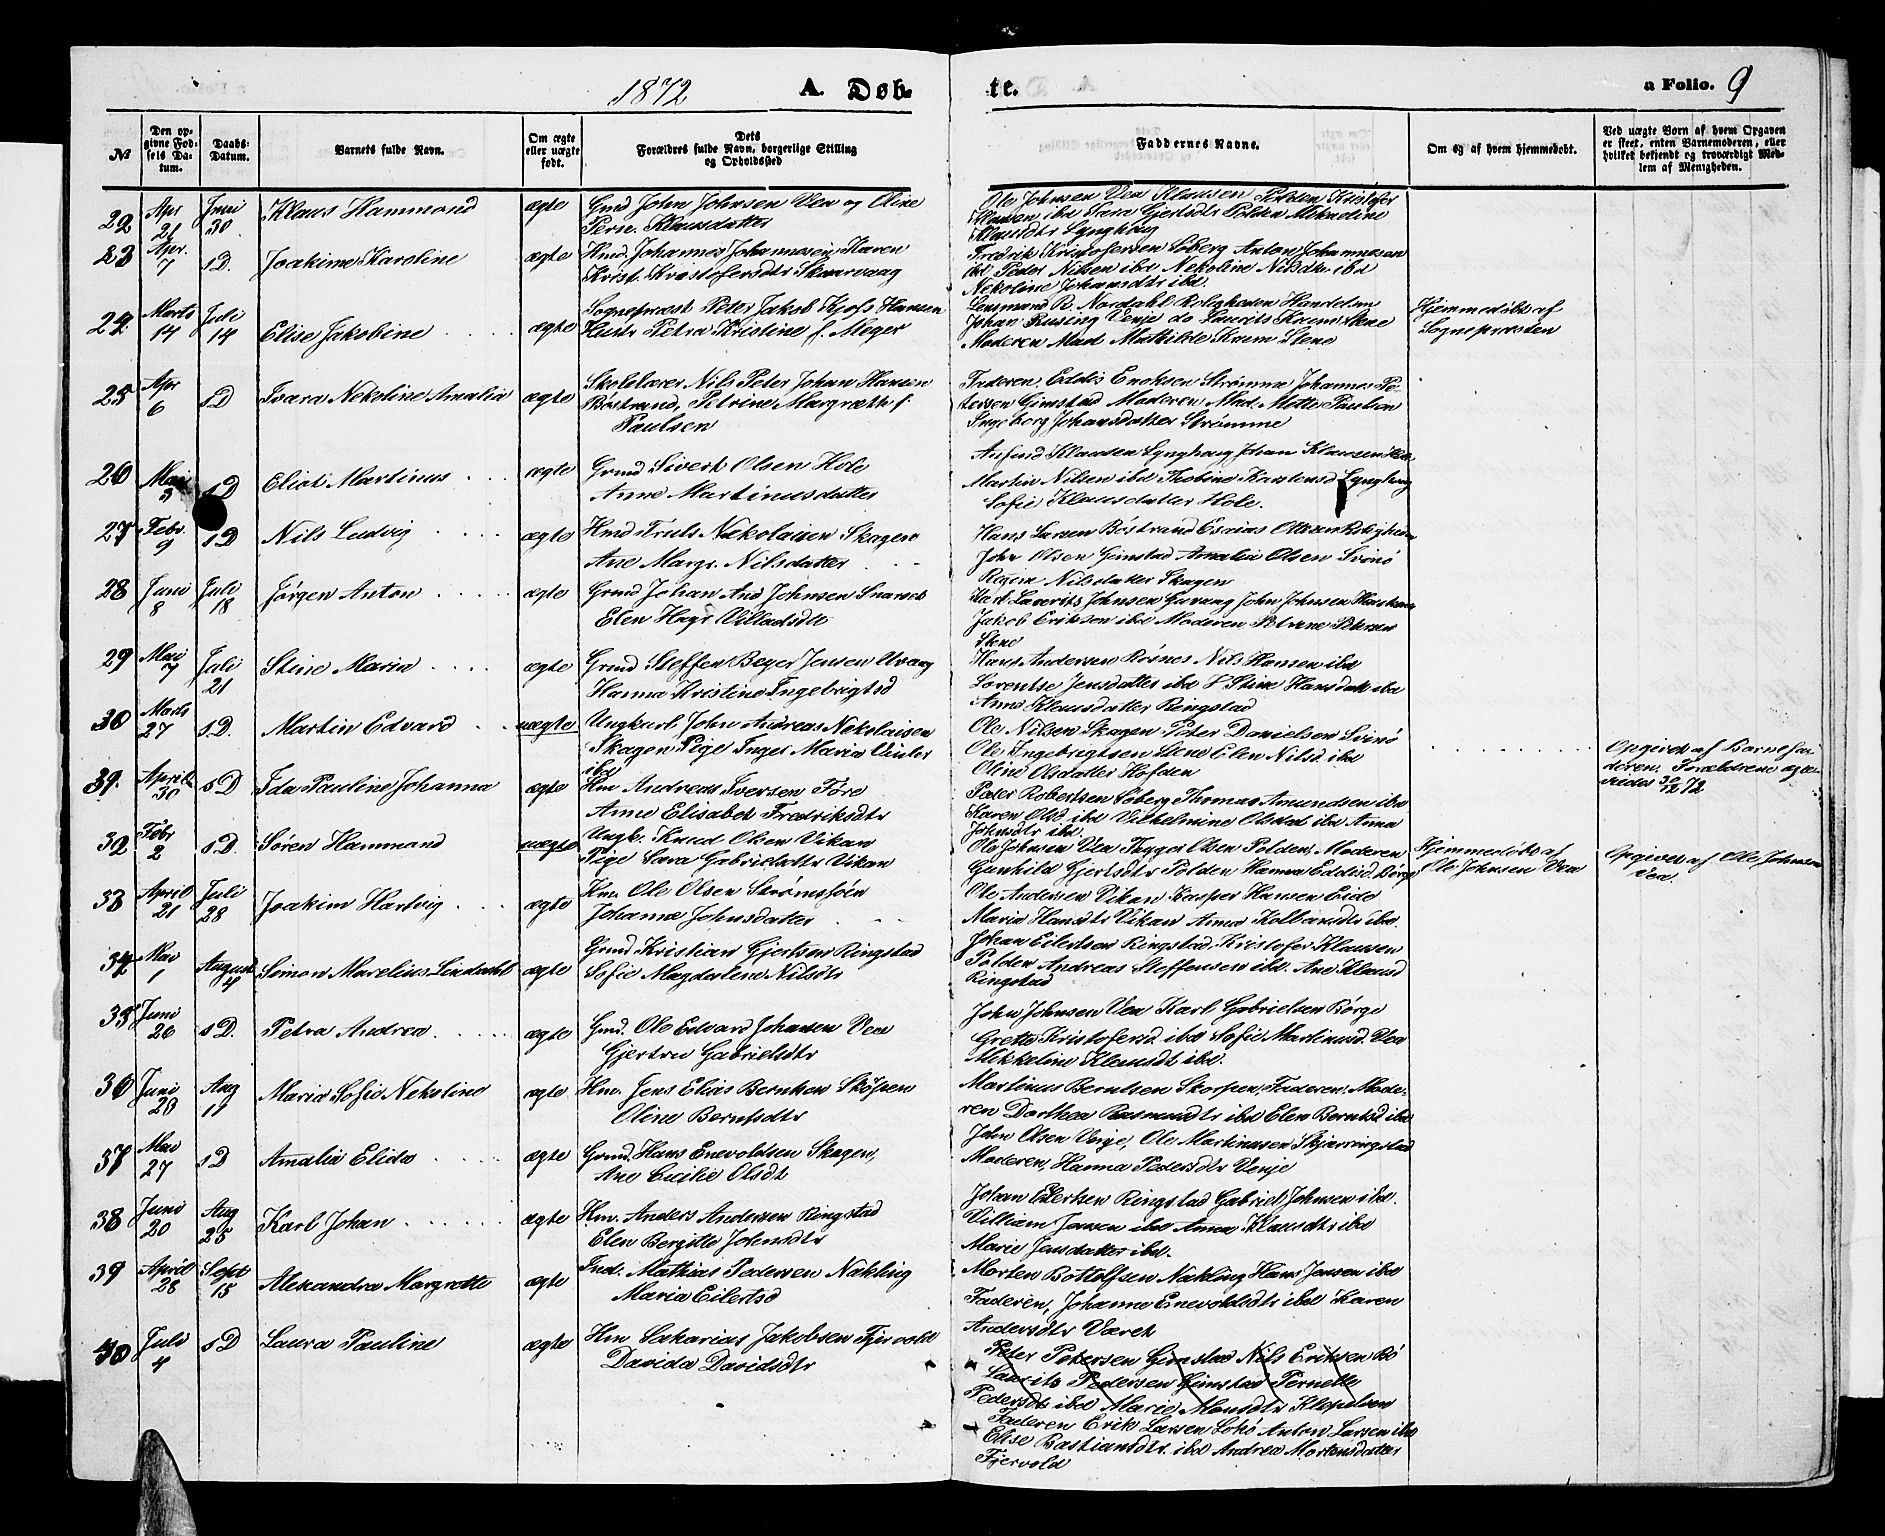 1872 A. Døb- te. a Folio. 9
No
Den opgivne Fødsels Datum.
Daabs-Datum.
Barnets fulde Navn.
Om ægte eller uægte født.
Dets Forældres fulde Navn, borgerlige Stilling og Opholdssted
Faddernes Navne.
Om og af hvem hjemmedøbt.
Ved uægte Børn af hvem Opgaven er skeet, enten Barnemoderen, eller hvilket bekjendt og troværdigt Medlem af Menigheden.
22 Apr 21 Juni 30 Klaus Hammond ægte Gmd John Johnsen Vea og Oline
Pern. Klausdatter
Ole Johnsen Vea Klausen Polden, Kristofer
Klausen ibd Gjertsdtr Polden Mekaline
Klausdtr Lynghaug
23 Apr. 7 s.D. Joakime Karoline ægte Hmd. Johannes Johannesen, Karen
Krist. Kristofersdtr Skaarvaag
Fredrik Kristofersen Soberg Anton Johannesen
ibd Peder Nilsen ibd Nekoline Nilsdtr ibd
Nekoline Johansdtr ibd.
24. Marts 14 Juli 14 Elise Jakobine ægte Sogneprest Peter Jakob Hansen
Hustr Petra Kristine f. Meyer
Lensmand R. Nordahl Roligheden Handelsm
Johan Rusing Venje do Laurits Krum Stene
Moderen Mad Mathilde Krum Stene
Hjemmedøbt af
Sognepresten
25 Apr 6 s.D Ivara Nekoline Amalia ægte Skolelærer Nils Peter Johan Hansen
Bøstrand, Petrine Margrethe f.
Paulsen
Faderen, Eddis Enoksen Strømme Johannes Pe-
tersen Gimstad Moderen Mad. Mette Paulsen
Ingeborg Johansdatter Strømme
26 Mai 3 s.D Eliot Martinus ægte Grmd Sivert Olsen Hole
Anne Martinusdatter
Klausen Lynghaug Johan Klausen
Martin Nilsen ibd Karstensd Lynghaug
Sofie Klausdatter Hole.
27 Febr. 9 s.D Nils Ludvig ægte Hmd Truls Nekolaisen Skagen
Ane Margr. Nilsdatter
Hans Larsen Böstrand Esaias Ottesen Roligheden
John Olsen Gimstad Amalia Olsen Svinö
Nilsdatter Skagen
28 Juni 8 Juli 18 Jørgen Anton ægte Grmd Johan And Johnsen Snarset
Elen Hagr Villadsdtr
Karl Laurits Johnsen Guvaag John Johnsen
Jakob Eriksen ibd Moderen Petersen
Stene
29 Mai 7 Juli 21 Stine Maria ægte Grmd Steffen Beyer Jensen Uvaag
Hanna Kristine Ingebrigtsd
Hans Andersen Rösnes Nils Hansen ibd
Lorentse Jensdatter ibd Stine Hansdatt ibd
Anne Klausdatter Ringstad
30 Marts 27 s.D. Martin Edvard uægte Ungkarl John Andreas Nekolaisen
Skagen Pige Inger Maria
ibd
Ole Nilsen Skagen Peter Danielsen Svinö
Ole Ingebrigtsen Stene Elen Nilsd ibd
Oline Olsdatter Hofden
Opgivet af Barnefa-
deren. Forældrene
31. April 30 s.D Ida Pauline Johanna ægte Hm Andreas Iversen Före
Anne Elisabet Fredriksdtr
Peder Robertsen Soberg Thomas Amundsen ibd
Karen Olsd ibd Vilhelmine Olsdatt ibd Anna
Johnsdtr ibd.
32 Febr 2 s.D. Søren Hammond uægte Ungk. Knud Olsen Vikan
Pige Sara Gabrielsdtr Vikan
Ole Johnsen Vea Trygger Olsen Polden, Moderen
Gunhild Gjertsdtr Polden Hanna Eddisd Børge
Hjemmedøbt af
Ole Johnsen Vea
Opgivet af Ole Johnsen
Vea.
33 April 21 Juli 28 Joakim Hartvig ægte Hm. Ole Olsen Strømsjöen
Johanna Johnsdatter
Ole Andersen Vikan Kasper Hansen Eide
Maria Hansdtr Vikan Anna ibd
34 Mai 1 August 4 Simon Marelius Lindahl ægte Grmd Kristian Gjertsen Ringstad
Sofie Magdalene Nilsdtr
Johan Eilertsen Ringstad, Kristofer Klausen
Polden Andreas Steffensen ibd. Ane Klausd
Ringstad
35 Juni 26 s.D. Petra Andrea ægte Gmd. Ole Edvard Johansen Vea
Gjertru Gabrielsdtr
John Johnsen Vea Karl Gabrielsen Börge
Grette Kristofersd ibd Sofie Martinusd Vea
Mekkeline Klausdt ibd.
36 Juni 20 Aug 11 Maria Sofie Nekoline ægte Hm. Jens Elias Berntsen Skorpen
Oline Berntsdtr
Martinus Berntsen Skorpen, Faderen, Mode-
ren Dorthea Rasmusdtr ibd Elen Berntsd ibd
37 Mai 27 s.D Amalia Elida ægte Grmd. Hans Enevoldsen Skagen,
Ane Cecilie Olsdt
John Olsen Venje, Ole Martinusen Skjærvingstad
Moderen, Hanna Pedersdtr Venje
38 Juni 20 Aug 25 Karl Johan ægte Hm. Anders Andersen Ringstad
Elen Bergitte Johnsdtr
Johan Eilertsen Ringstad Gabriel Johnsen ibd.
Villiam Jensen ibd Anna Klausdtr ibd
Marie Jensdatter ibd.
39 April 28 Sept 15 Aleksandra Margrette ægte Ind. Mathias Pedersen Nækling
Maria Eilertsd
Morten Bottolfsen Nækling Hans Jensen ibd
Faderen, Johanna Enevoldsdtr ibd Karen
Andersdtr Været
40 Juli 4 s.D Laura Pauline ægte Hm Sakarias Jakobsen Fjervold
Davida Davidsdtr
Peter Petersen Gimstad Nils Eriksen Bö
Laurits Pedersen Gimstad Pernelle
Pedersdtr ibd Marie Monsdtr
Faderen Erik Larsen Sokö Anton Larsen ibd
Elise Bastiansdtr. ibd Andrea Mortensdatter
Fjervold